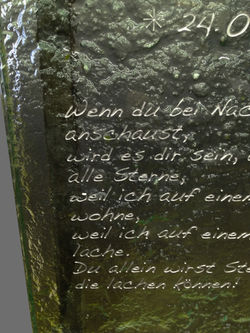 * 24.0
Wenn du bei Nac
anschaust,
wird es dir sein,
alle Sterne,
weil ich auf einem
wohne,
weil ich auf einem
lache.
Du allein wirst Ste
die lachen können!